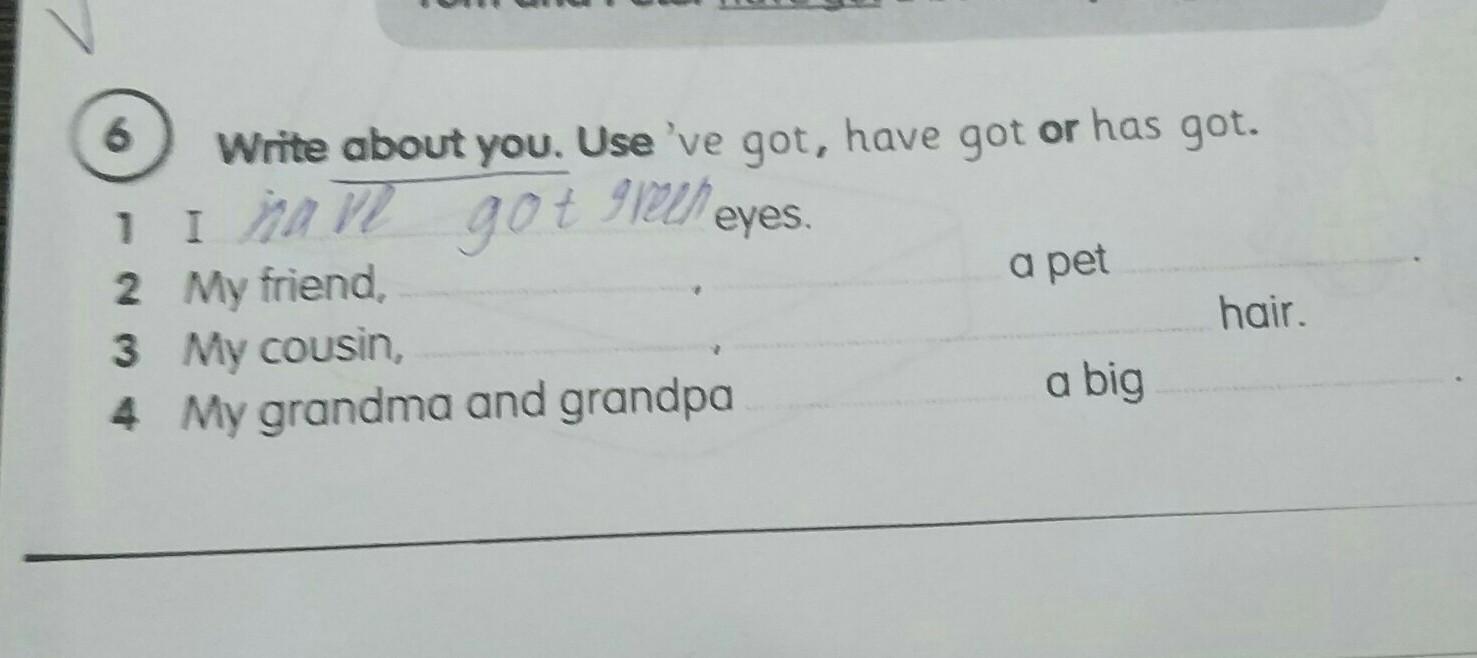 6 Write about you. Use 've got, have got or has got.
1 I have got green eyes.
2 My friend, , a pet .
3 My cousin, , hair.
4 My grandma and grandpa a big .